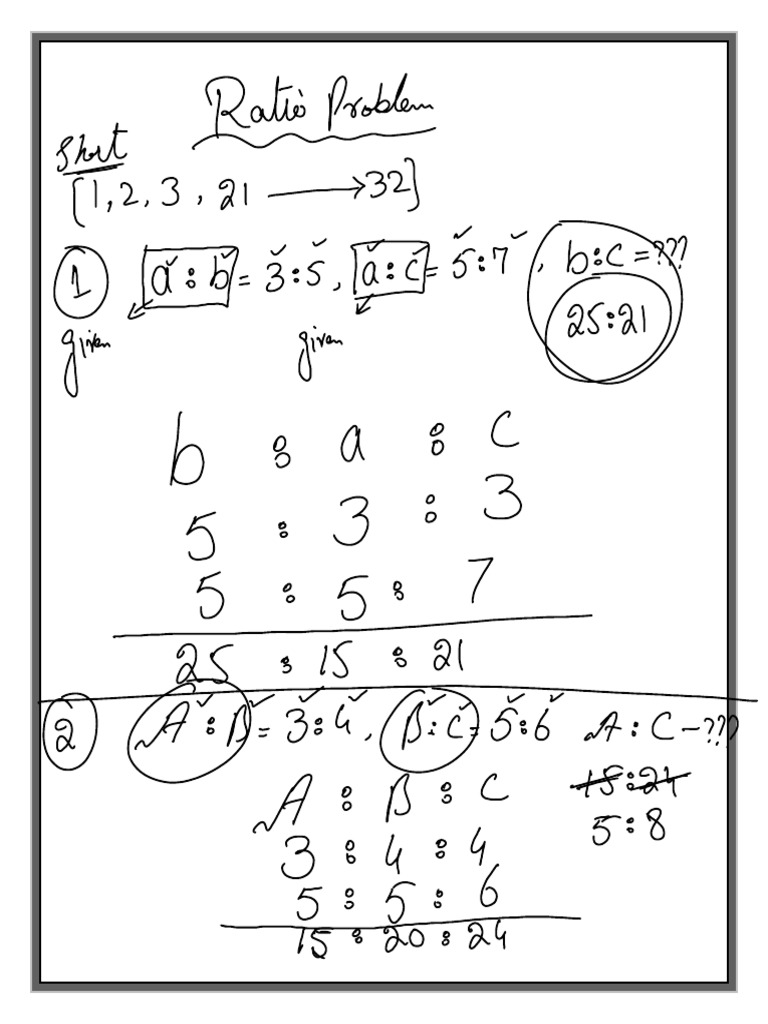 Ratio Problem
Short
[1, 2, 3, 21 ⟶ 32]
1 a : b = 3 : 5, a : c = 5 : 7, b : c = ???
given given 25 : 21
b : a : c
5 : 3 : 3
5 : 5 : 7
25 : 15 : 21
2 A : B = 3 : 4, B : C = 5 : 6 A : C - ???
A : B : C 15 : 24
3 : 4 : 4 5 : 8
5 : 5 : 6
15 : 20 : 24